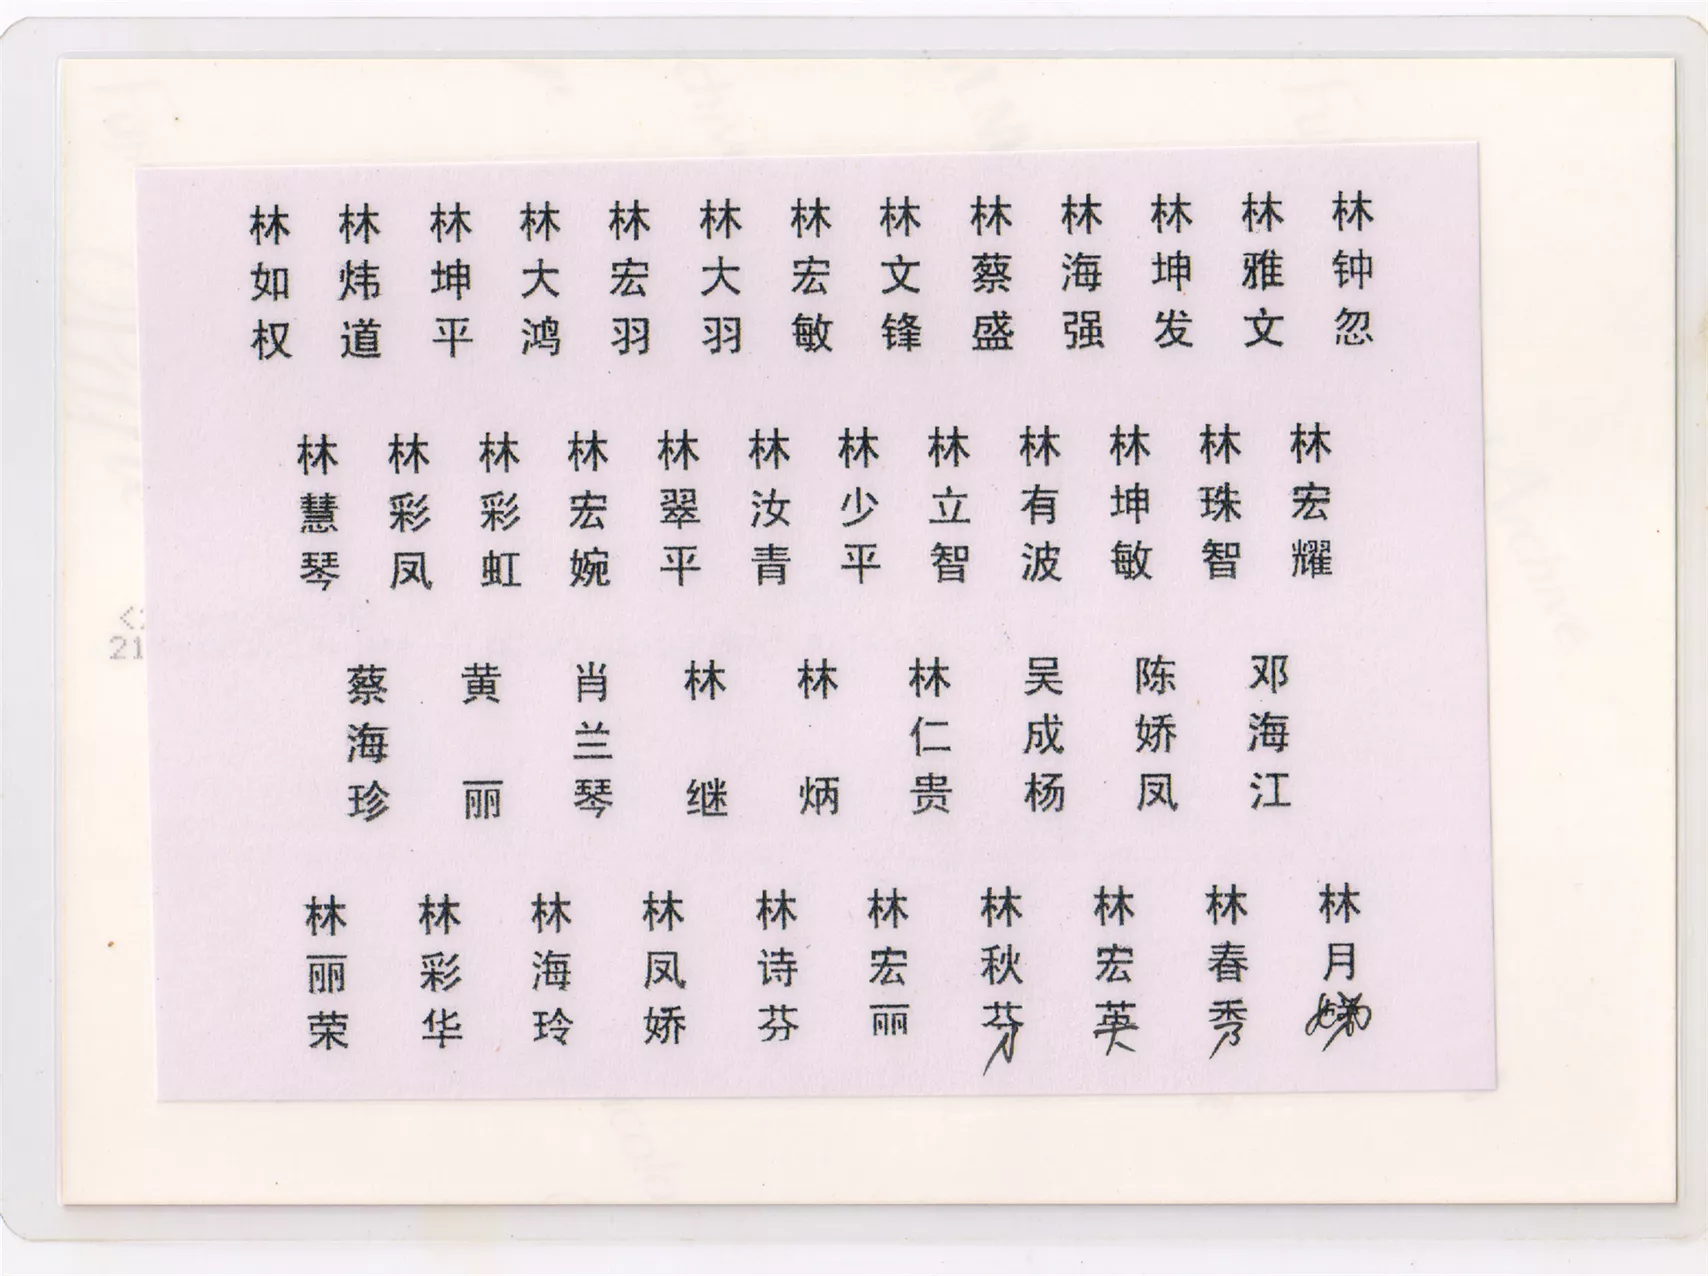 林如权 林炜道 林坤平 林大鸿 林宏羽 林大羽 林宏敏 林文锋 林蔡盛 林海强 林坤发 林雅文 林钟忽
林慧琴 林彩凤 林彩虹 林宏婉 林翠平 林汝青 林少平 林立智 林有波 林坤敏 林珠智 林宏耀
蔡海珍 黄丽 肖兰琴 林继 林炳 林仁贵 吴成杨 陈娇凤 邓海江
林丽荣 林彩华 林海玲 林凤娇 林诗芬 林宏丽 林秋芬 林宏英 林春秀 林月
21